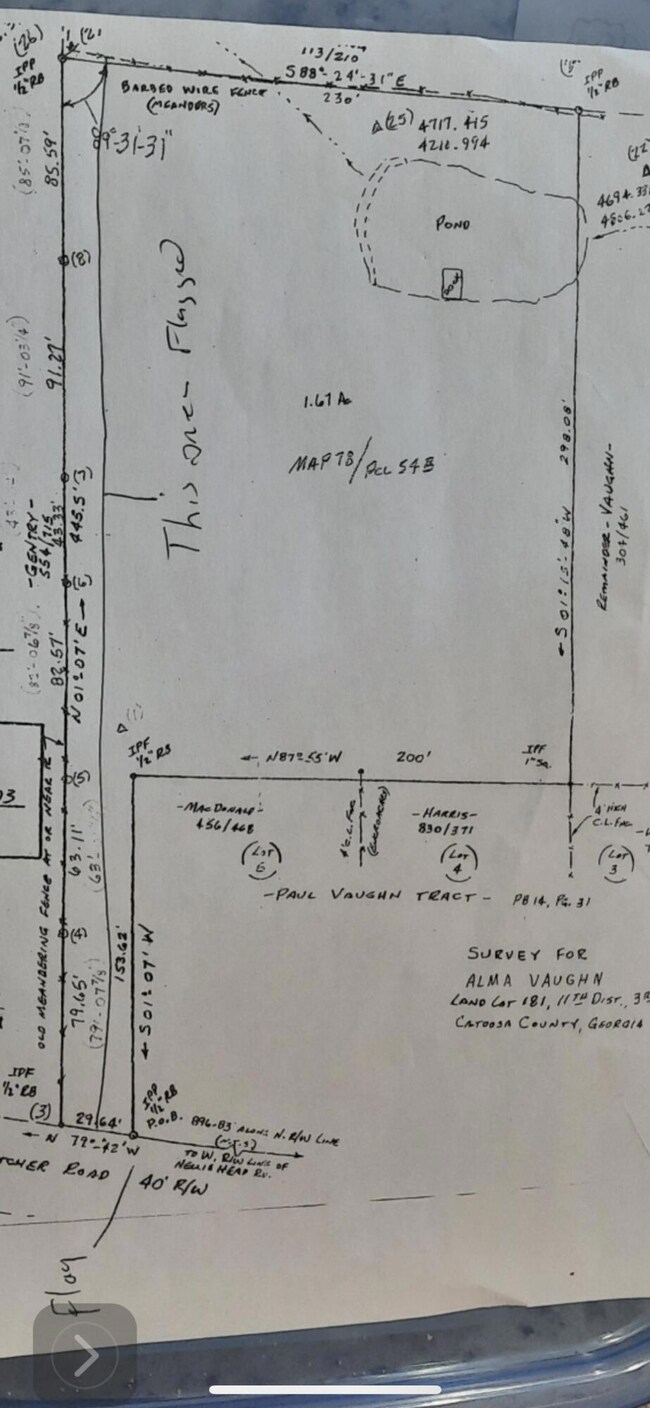 (26)
(2)
IPP
1/2" RB
113/210
S 88°-24'-31" E
230'
BARBED WIRE FENCE
(MEANDERS)
IPP
1/2" RB
(25) 4717.415
4211.994
89°-31-31"
(85'-07 1/8)
85.59'
POND
(8)
This one - Flagged
(91'-03 1/4)
91.27'
1.67 Ac
MAP 78/PCL 54B
-GENTRY-
554/715
43.33'
445.5'
N 01°07' E →
82.57'
← S 01°-15'-48" W 298.08'
REMAINDER-VAUGHN-
307/461
IPF
1/2" RB
← N87°-55' W 200'
IPF
1" SQ.
-MACDONALD-
456/468
-HARRIS-
830/371
4' HIGH
C.L. FNC
(LOT
4)
(LOT
3)
-PAUL VAUGHN TRACT- PB 14, PG. 31
OLD MEANDERING FENCE AT OR NEAR
63.11'
79.65'
(79'-07 7/8)
153.62'
← S 01°07' W
SURVEY FOR
ALMA VAUGHN
LAND LOT 181, 11TH DIST.,
CATOOSA COUNTY, GEORGIA
IPF
1/2" RB
(3)
29.64'
← N 79°-42' W
IPP
1/2" RB
P.O.B. 896.83' ALONG N. R/W LINE
(N.T.S)
TO W. R/W LINE OF
NELLIE HEAD RD.
TCHER ROAD
40' R/W
Flag